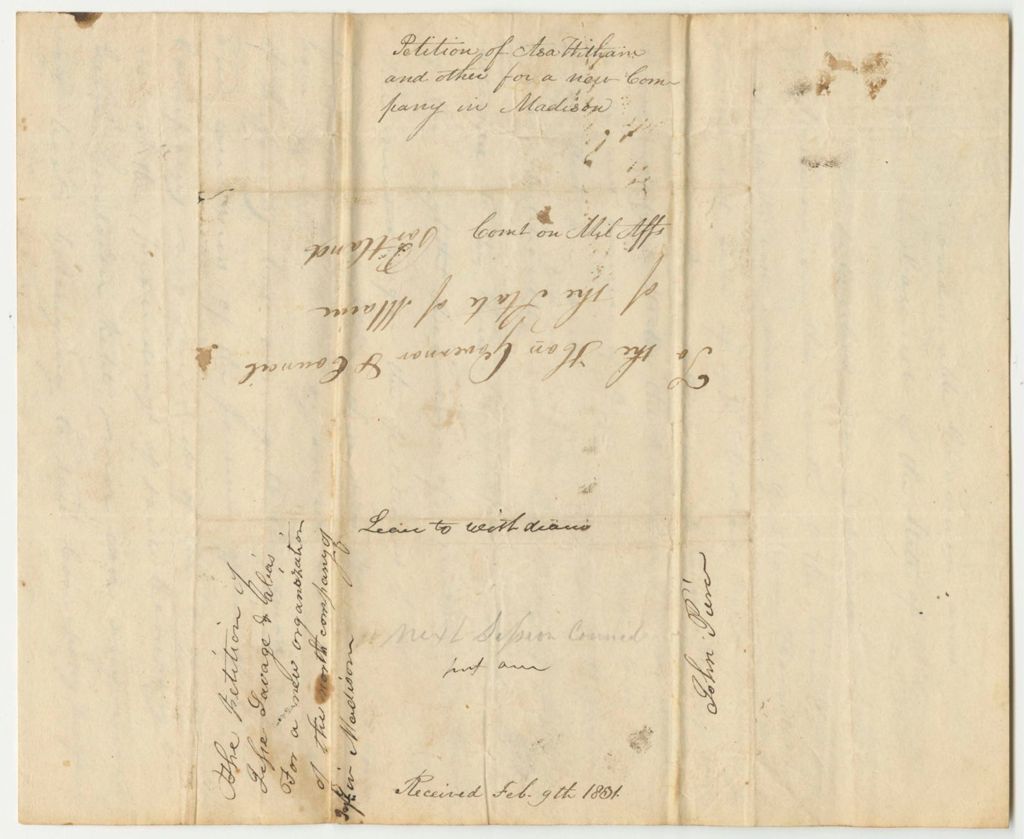 Petition of Asa
and other for a new Com-
pany in Madison
Comt on Mil Affs
To the Hon Governor & Council
of the State of Maine
Portland
Leave to withdraw
next Session Council
Received Feb. 9th 1831.
The Petition of
Jesse Savage & alias
For a new organization
of the north company of
in Madison
John Pierce